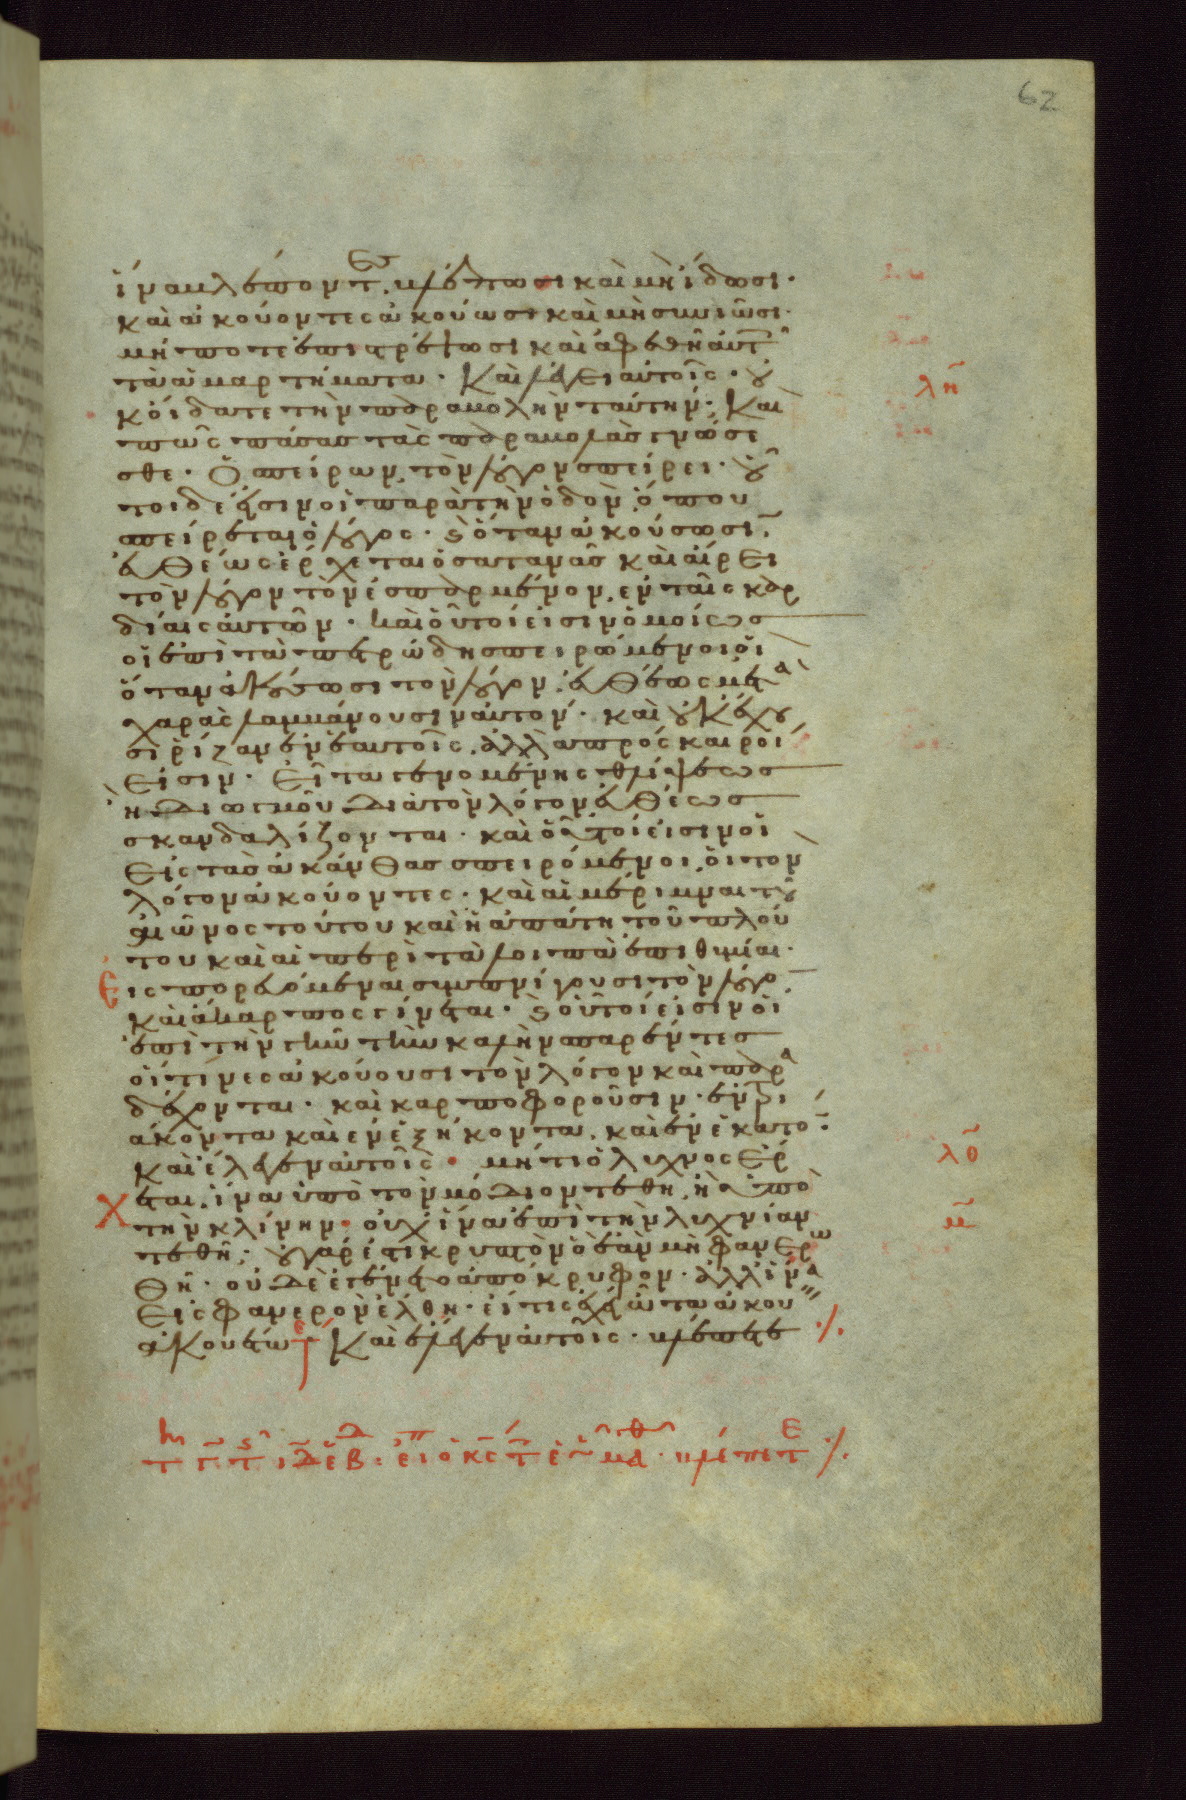 62
ἵνα βλέποντες βλέπωσι καὶ μὴ ἴδωσι·
καὶ ἀκούοντες ἀκούωσι καὶ μὴ συνιῶσι·
μήποτε ἐπιστρέψωσι καὶ ἀφεθῆ αὐτοῖς
τὰ ἁμαρτήματα· Καὶ λέγει αὐτοῖς· οὐ
κ οἴδατε τὴν παραβολὴν ταύτην· Καὶ
πῶς πάσας τὰς παραβολὰς γνώσε
σθε· Ὁ σπείρων τὸν λόγον σπείρει· οὗ
τοι δέ εἰσιν οἱ παρὰ τὴν ὁδὸν, ὅπου
σπείρεται ὁ λόγος· καὶ ὅταν ἀκούσωσιν
εὐθέως ἔρχεται ὁ σατανᾶς καὶ αἴρει
τὸν λόγον τὸν ἐσπαρμένον ἐν ταῖς καρ
δίαις αὐτῶν· καὶ οὗτοί εἰσιν ὁμοίως
οἱ ἐπὶ τὰ πετρώδη σπειρόμενοι οἳ
ὅταν ἀκούσωσι τὸν λόγον, εὐθέως μετὰ
χαρᾶς λαμβάνουσιν αὐτόν· καὶ οὐκ ἔχου
σι ρίζαν ἐν ἑαυτοῖς, ἀλλὰ πρόσκαιροί
εἰσιν· Εἶτα γενομένης θλίψεως
ἢ διωγμοῦ διὰ τὸν λόγον εὐθέως
σκανδαλίζονται· καὶ οὗτοί εἰσιν οἱ
εἰς τὰς ἀκάνθας σπειρόμενοι, οἱ τὸν
λόγον ἀκούοντες· καὶ αἱ μέριμναι τοῦ
αἰῶνος τούτου καὶ ἡ ἀπάτη τοῦ πλού
του καὶ αἱ περὶ τὰ λοιπὰ ἐπιθυμίαι·
Εἰσπορευόμεναι συμπνίγουσι τὸν λόγον
καὶ ἄκαρπος γίνεται· καὶ οὗτοί εἰσιν οἱ
ἐπὶ τὴν γῆν τὴν καλὴν σπαρέντες
οἵτινες ἀκούουσι τὸν λόγον καὶ παρα
δέχονται· καὶ καρποφοροῦσιν· ἐν τρι
άκοντα καὶ ἐν ἑξήκοντα, καὶ ἐν ἑκατόν·
λη
Καὶ ἔλεγεν αὐτοῖς· μήτι ὁ λύχνος ἔρ
λθ
Χεται, ἵνα ὑπὸ τὸν μόδιον τεθῆ, ἢ ὑπὸ
τὴν κλίνην· οὐχ ἵνα ἐπὶ τὴν λυχνίαν
μ
τεθῆ· οὐ γάρ ἐστι κρυπτὸν ὃ ἐὰν μὴ φανερω
θῆ· οὐδὲ ἐγένετο ἀπόκρυφον· ἀλλ' ἵνα
εἰς φανερὸν ἔλθη· εἴ τις ἔχει ὦτα ἀκού
ειν ἀκουέτω Καὶ ἔλεγεν αὐτοῖς· βλέπετε